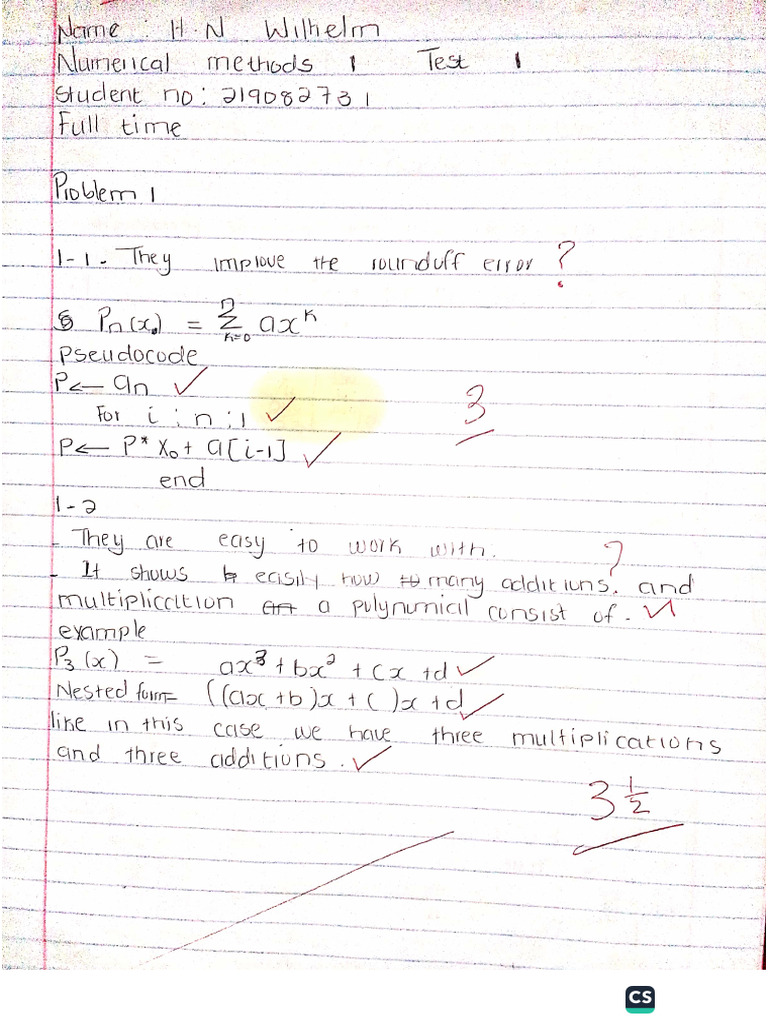 Name : H.N Wilhelm
Numerical methods 1 Test 1
Student no: 219082731
Full time
Problem 1
1-1. They improve the roundoff error ?
Pn(x₀) = Σ axᵏ
n
k=0
Pseudocode
P ← an ✓
For i : n : 1 ✓
3
P ← P* x₀ + a[i-1] ✓
end
1-2
- They are easy to work with.
- It shows easily how many additions. and ?
multiplication a polynomial consist of. ✓
example
P₃(x) = ax³ + bx² + cx + d ✓
Nested form = ((ax + b)x + c)x + d ✓
like in this case we have three multiplications
and three additions. ✓
3 ½
CS